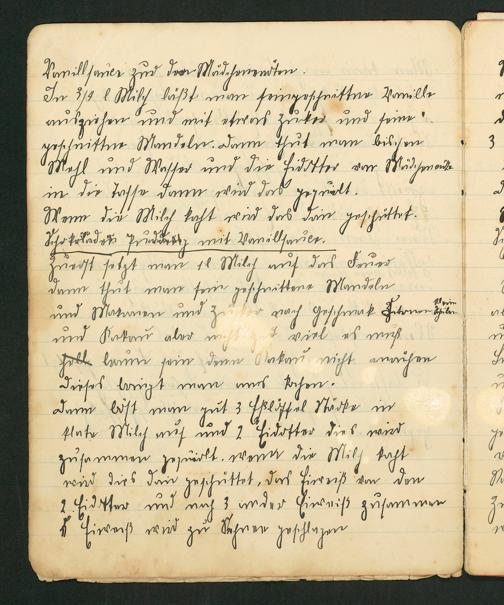 Vanillsauce zu den Mädchenröten.
In 3/4 l Milch läßt man feingeschnittne Vanille
ausziehen und mit etwas Zuker und feine
geschnittne Mandeln. dann thut man bischen
Mehl und Wasser und die Eidotter von Mädchenröte
in die Tasse dann wird das gequirlt.
Wenn die Milch kocht wird das dan geschüttet.
Schokoladen Pudding mit Vanillsauce.
Zuerst setzt man 1 l Milch auf das Feuer
dann thut man fein geschnittene Mandeln
und Makronen und Zucker nach Geschmak
und Kakau aber nicht zu viel es muß
braun sein denn Kakau nicht
dieses bringt man ans kochen.
Dann löst man gut 3 Eßlöffel Stärke in
klate Milch auf und 2 Eidotter dies wird
zusammen gequirlt. wenn die Milch kocht
wird dies dain geschüttet, das Eiweiß von den
2 Eidotter und noch 3 ander Eiweiß zusammen
5 Eiweiß wird zu Schnee geschlagen